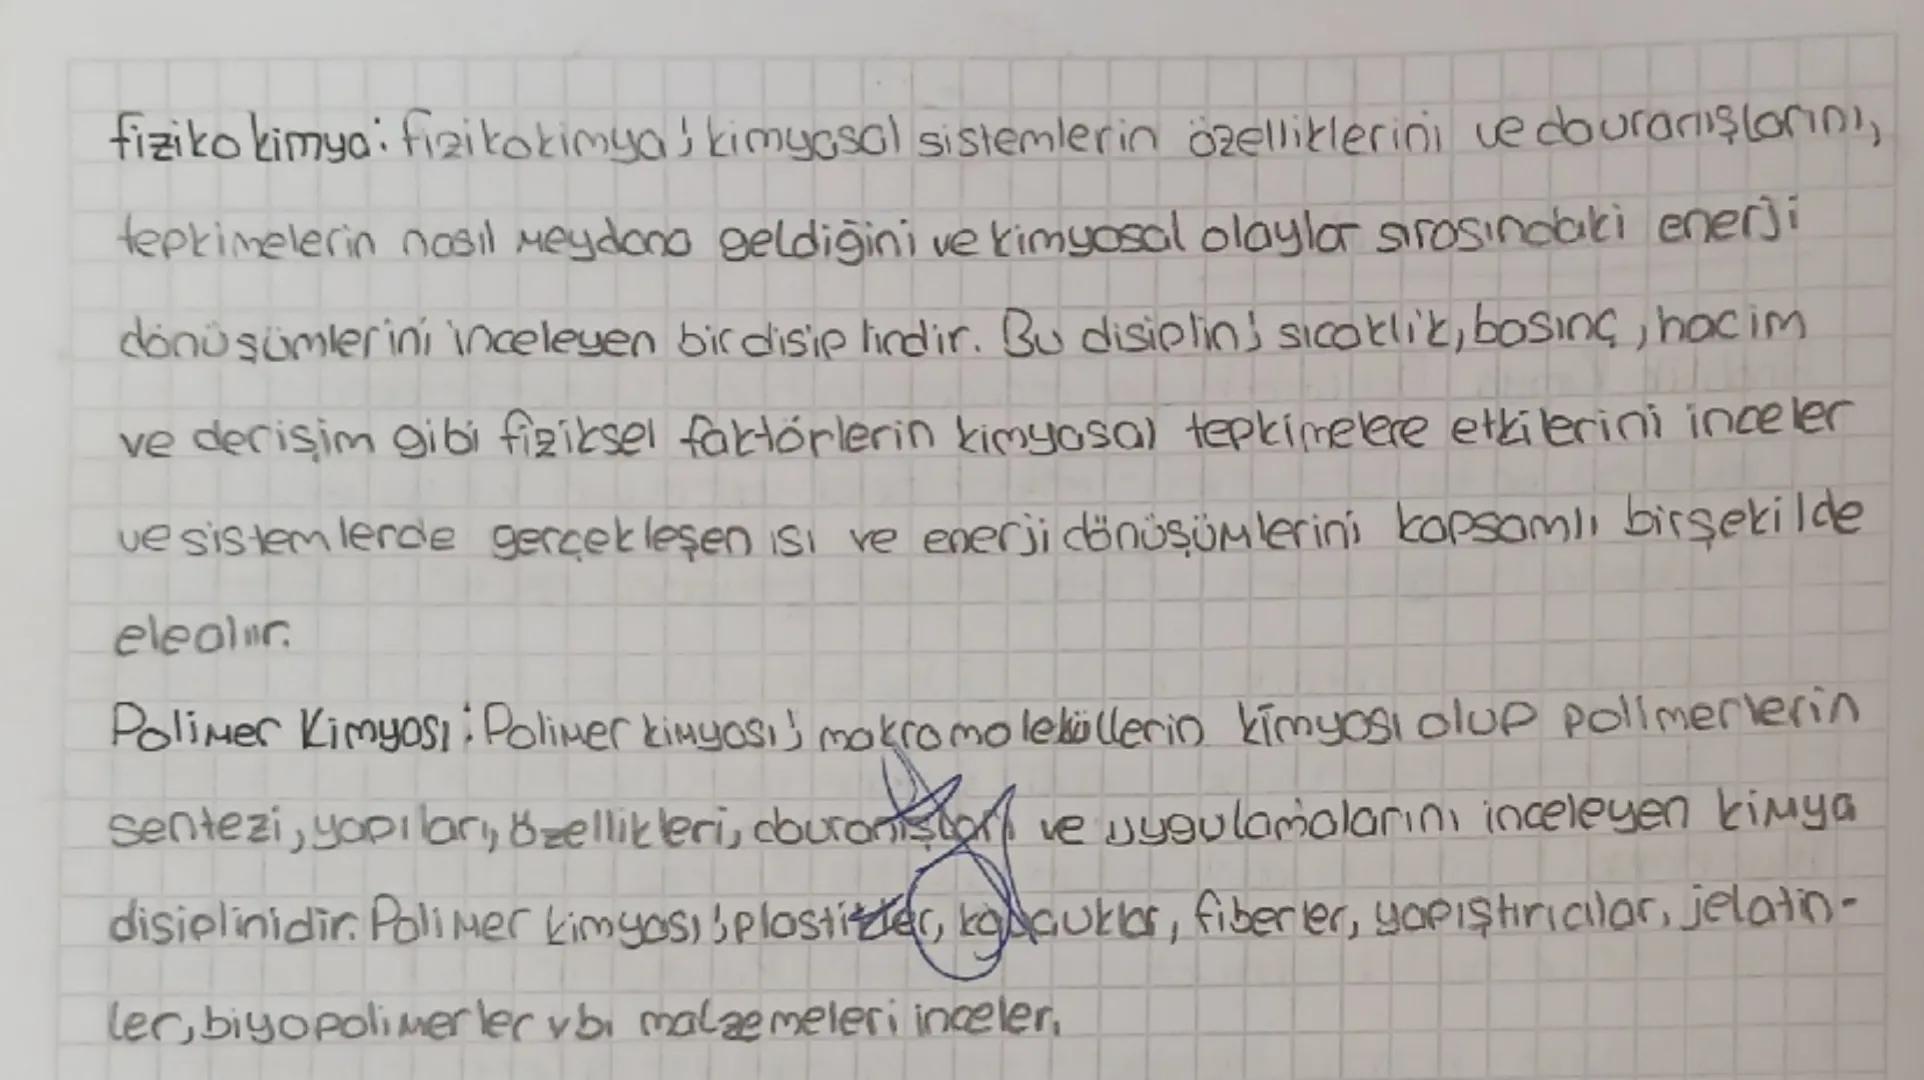 fiziko kimya: fizikokimya; kimyasal sistemlerin özelliklerini ve davranışlarını,
tepkimelerin nasıl meydana geldiğini ve kimyasal olaylar sırasındaki enerji
dönüşümlerini inceleyen bir disiplindir. Bu disiplin; sıcaklık, basınç, hacim
ve derişim gibi fiziksel faktörlerin kimyasal tepkimelere etkilerini inceler
ve sistemlerde gerçekleşen ısı ve enerji dönüşümlerini kapsamlı bir şekilde
ele alır.
Polimer Kimyası: Polimer kimyası; makromoleküllerin kimyası olup polimerlerin
sentezi, yapıları, özellikleri, davranışları ve uygulamalarını inceleyen kimya
disiplinidir. Polimer kimyası; plastikler, kauçuklar, fiberler, yapıştırıcılar, jelatin-
ler, biyopolimerler vb. malzemeleri inceler.